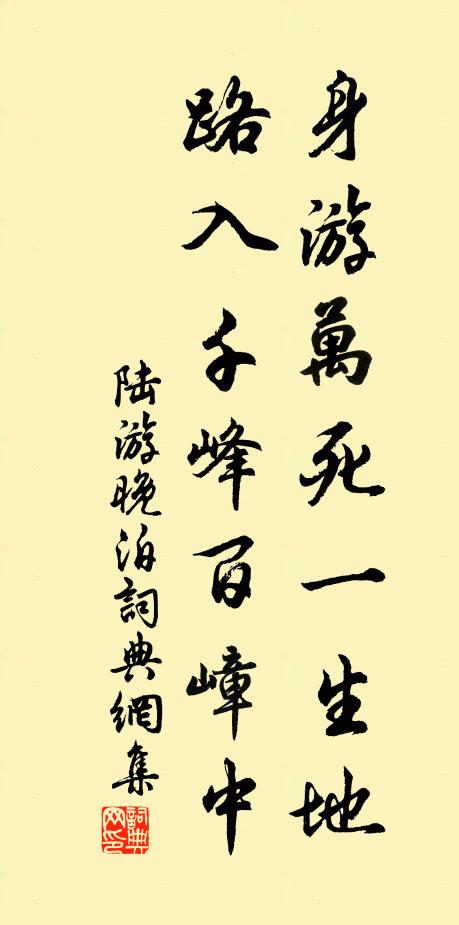 身游萬死一生地
路入千峰百嶂中
陆游晚泊詞典網集
詞典網印